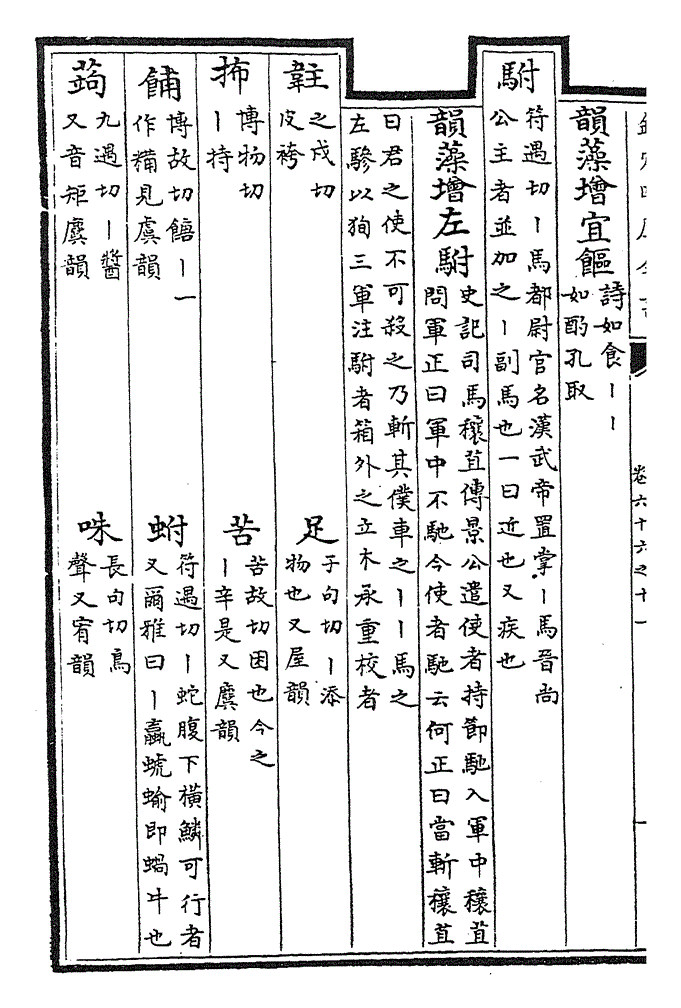 卷六十六之十一
韻藻增宜饇
詩如食丨丨
如酌孔取
駙
符遇切丨馬都尉官名漢武帝置掌丨馬晉尚
公主者並加之丨副馬也一曰近也又疾也
韻藻增左駙
史記司馬穰苴傳景公遣使者持節馳入軍中穰苴
問軍正曰軍中不馳今使者馳云何正曰當斬穰苴
曰君之使不可殺之乃斬其僕車之丨丨馬之
左驂以狥三軍注駙者箱外之立木承重校者
䪒
之戍切
皮袴
足
子句切丨添
物也又屋韻
抪
博物切
丨持
苦
苦故切困也今之
丨辛是又麌韻
餔
博故切丨一
作䊇見虞韻
蚹
符遇切丨蛇腹下橫鱗可行者
又爾雅曰丨蠃螔蝓即蝸牛也
蒟
九遇切丨醬
又音矩麌韻
咮
長句切鳥
聲又宥韻